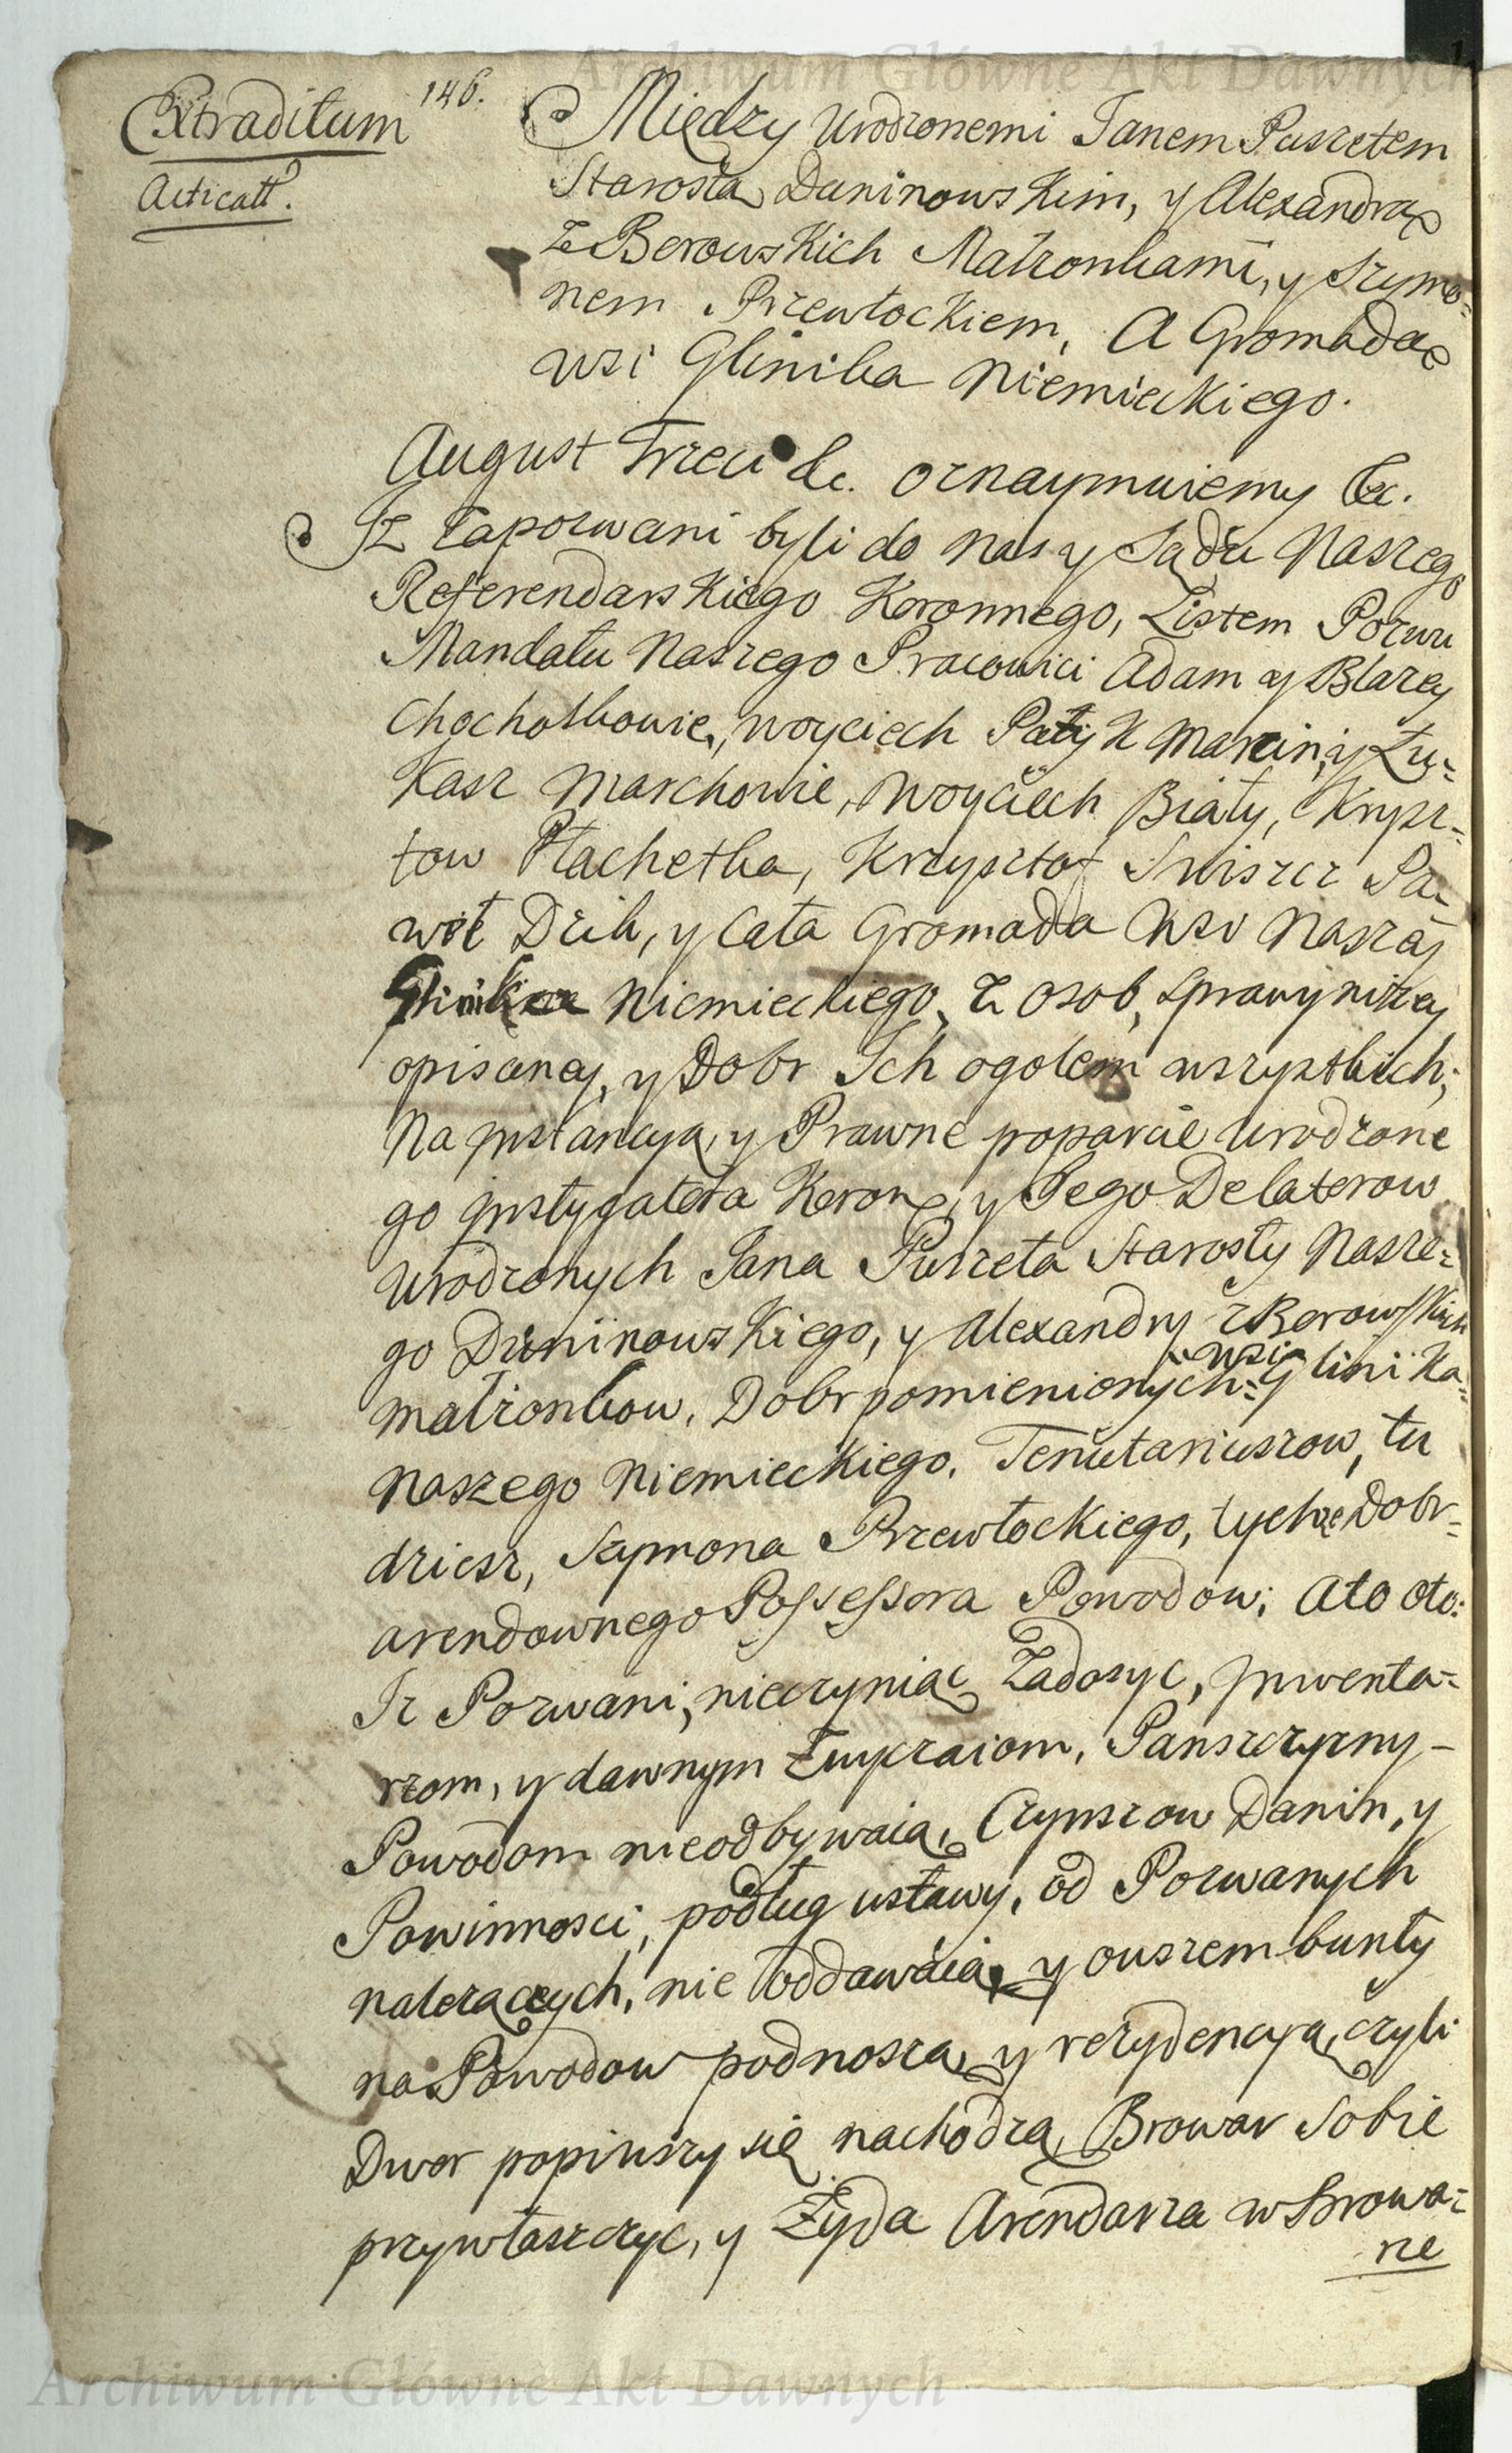 Archiwum Główne Akt Dawnych
146.
Extraditum
Acticatt.
Między Urodzonemi Janem Puszetem
Starostą Duninowskim, y Alexandrą
z Borowskich Małzonkami, y Szymo=
nem Przewłockiem, A Gromadą
wsi Glinika Niemieckiego.
August Trzeci &c. oznaymuiemy &c.
Iz Zapozwani byli do nas y Sądu Naszego
Referendarskiego Koronnego, Listem Pozwu
Mandatu Naszego Pracowici Adam y Błazey
Chochołkowie, Woyciech Patyk Marcin, y Łu=
kasz Marchowie, Woyciech Biały, Krysz=
tow Płachetka, Krzysztof Swiszcz Pa=
weł Dzik, y Cała Gromada Wsi Naszey
Glinika Niemieckiego, Z osob, Sprawy nizey
opisaney, y Dobr Ich ogołem wszystkich;
Na Instancyą, y Prawne poparcie Urodzone
go Instygatora Koron, y Jego Delatorow
Urodzonych Jana Puszeta Starosty Nasze=
go Duninowskiego, y Alexandry z Borowskich
małzonkow, Dobr pomienionych = wsi Glinika=
naszego Niemieckiego, Tenutariuszow, tu
dziesz, Szymona Przewłockiego, tychze Dobr=
arendownego Possessora Powodow; Ato oto:
Iz Pozwani, nieczyniąc Zadosyc, Inwenta=
rzom, y dawnym Zwyczaiom, Panszczyzny-
Powodom nieodbywaią, Czynszow Danin, y
Powinnosci, podług ustawy, od Pozwanych
nalezących, nie oddawaią, y owszem bunty
na Powodow podnoszą, y rezydencyą, czyli
Dwor popiwszy się nachodzą, Browar Sobie
przywłaszczyc, y Żyda Arendarza w Browa=
rze
Archiwum Główne Akt Dawnych